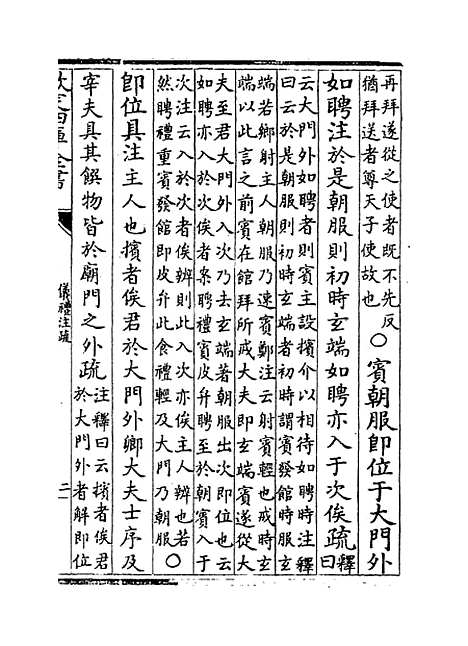 再拜遂從之使者既不先反
猶拜送者尊天子使故也
○賓朝服即位于大門外
如聘注於是朝服則初時玄端如聘亦入于次俟疏釋曰
云大門外如聘者則賓主設擯介以相待如聘時注釋
曰云於是朝服則初時玄端者初時謂賓發館時服玄
端若鄉射主人朝服乃速賓鄭注云射賓輕也戒時玄
端以此言之前賓在館拜所戒大夫即玄端賓遂從大
夫至君大門外入次乃去玄端著朝服出次即位也云
如聘亦入於次俟者案聘禮賓皮弁聘至於朝賓入于
次注云入於次者俟辨則此入次亦俟主人辨也若
然聘禮重賓發館即皮弁此食禮輕及大門乃朝服○
即位具注主人也擯者俟君於大門外卿大夫士序及
宰夫具其饌物皆於廟門之外疏注釋曰云擯者俟君
於大門外者解即位
欽定四庫全書
儀禮注疏
二